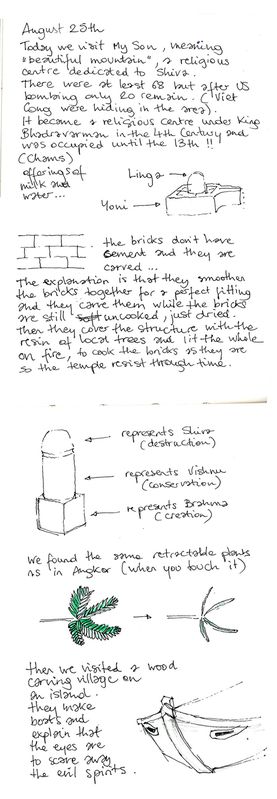 August 25th
Today we visit My Son, meaning
"beautiful mountain", a religious
centre dedicated to Shiva.
There were at least 68 but after US
bombing only 20 remain. (Viet
Cong were hiding in the area).
It became a religious centre under King
Bhadravarman in the 4th Century and
was occupied until the 13th !!
(Chams)
offerings of
milk and
water...
Linga
Yoni
the bricks don't have
cement and they are
carved...
The explanation is that they smoother
the bricks together for a perfect fitting
and they carve them while the bricks
are still uncooked, just dried.
Then they cover the structure with the
resin of local trees and lit the whole
on fire, to cook the bricks as they are
so the temple resist through time.
represents Shiva
(destruction)
represents Vishnu
(conservation)
represents Brahma
(creation)
We found the same retractable plants
as in Angkor (when you touch it)
then we visited a wood
carving village on
an island.
they make
boats and
explain that
the eyes are
to scare away
the evil spirits.